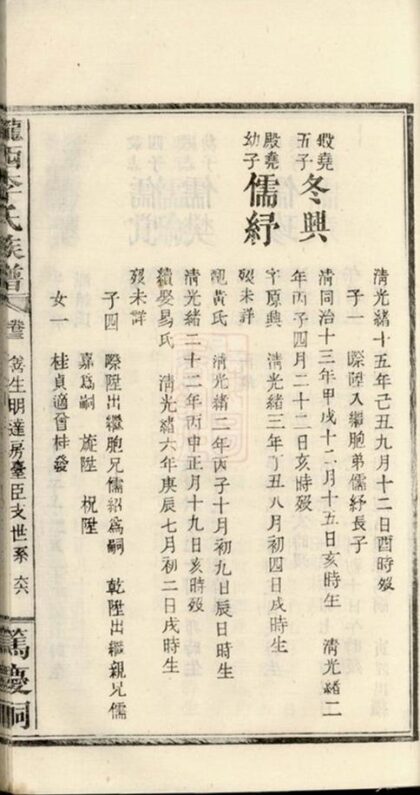 清光緒十五年己丑九月十二日酉時歿
子一　際陞入繼胞弟儒紓長子
殿堯五子冬興
清同治十三年甲戌十二月十五日亥時生　清光緒二
年丙子四月二十二日亥時歿
殿堯幼子儒紓
字原興　清光緒三年丁丑八月初四日戌時生
歿未詳
配黃氏　清光緒二年丙子十月初九日辰時生
清光緒二十二年丙申正月十九日亥時歿
續娶易氏　清光緒六年庚辰七月初二日戌時生
歿未詳
子四　際陞出繼胞兄儒紹為嗣　乾陞出繼親兄儒
嘉為嗣　旋陞　祝陞
女一　桂貞適曾桂發
隴西李氏族譜　卷　善生明達房臺臣支世系　六　篤慶嗣